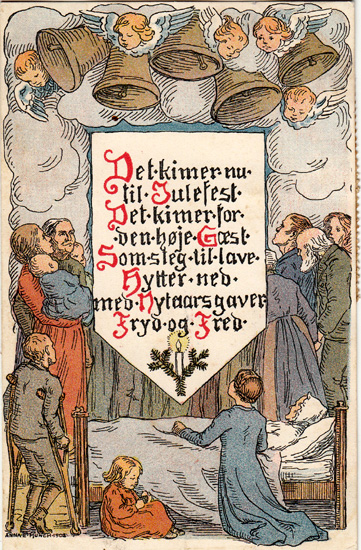 Det kimer nu
til Julefest
Det kimer for
den høje Gæst
Som steg til lave
Hytter ned
med Nytaarsgaver
Fryd og Fred
ANNA E. MUNCH 1902